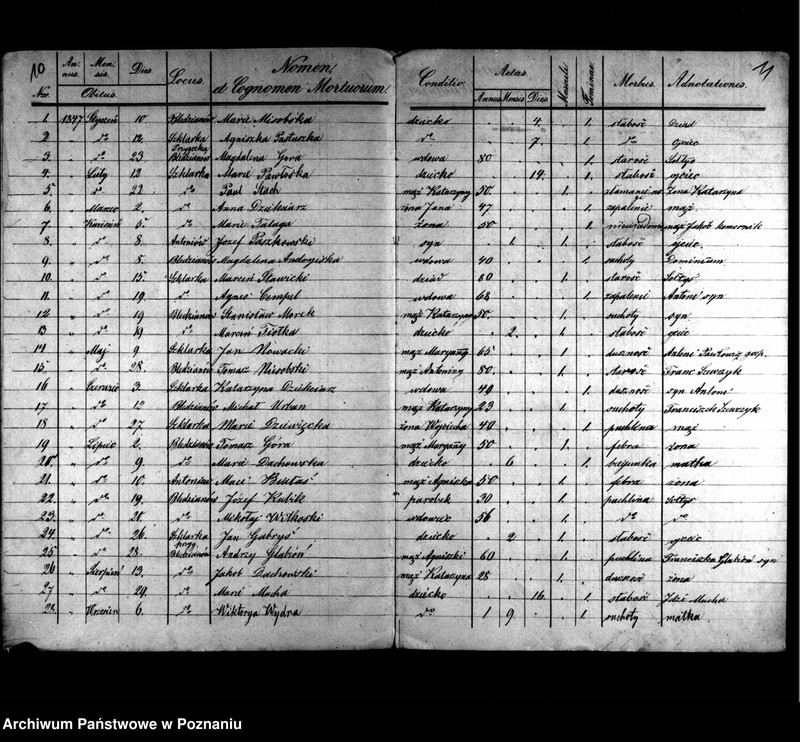 10 An- nus. Men- sis. Dies. Locus. Nomen et Cognomen Mortuorum. Conditio. Aetas. Masculi Feminae. Morbus. Adnotationes. 11
Nro. Obitus. Annus Mensis Dies
1. 1847 Styczeń 10. Bledzianów Maria dziecko 4. 1. słabość Dziad
2. " do 12. Szklarka Agnieszka Pastuszka do 7. 1. do ojciec
3. " do 23. Przygodzka Bledzianów Magdalena Gora wdowa 80 1. starość Sołtys
4. " Luty 12 Szklarka Maria Pawłoska dziecko 14. 1. słabość ojciec
5. " do 22. do Paul Stach mąż Katarzyny 50. 1. złamanie żona Katarzyna
6. " Marzec 2. do Anna Dzikiniarz żona Jana 47 1. zapalenie mąż
7. " Kwiecień 5. do Maria Talaga żona 50 1. niewiadoma mąż Jakob komornik
8. " do 8. Antoniów Jozef Paszkowski syn 1. 1. słabość ojciec.
9. " do 8. Bledzianów Magdalena wdowa 40 1. suchoty Dominium.
10. " do 15. Szklarka Marcin Sławicki dziad 80 1. starość Sołtys
11. " do 19. do Agnes Cempel wdowa 68 1. zapalenie Antoni syn
12 " do 19 Bledzianów Stanisław Morek mąż Katarzyny 50. 1. suchoty syn
13 " do 19 do Marcin Fiotka dziecko 2. 1. słabość ojciec
14 " Maj 9 Szklarka Jan Nowacki mąż Maryanny 65 1. duszność Antoni Pawłowicz gosp.
15 " do 28. Bledzianów Tomasz mąż Antoniny 80. 1. starość Franc Szewczyk
16 " Czerwiec 3. Szklarka Katarzyna Dzikiniarz wdowa 40 1. duszność syn Antoni
17 " do 12 Bledzianów Michał Urban mąż Katarzyny 23 1. suchoty Franciszek Szewczyk
18 " do 27. Szklarka Maria Dziewięcka żona Wojciecha 40 1. puchlina mąż
19 " Lipiec 2. Bledzianów Tomasz Góra mąż Maryanny 50 1. febra żona
20. " do 9. do Maria Dachowska dziecko 6 1. matka
21. " do 10. Antoniew Maci mąż Agnieszki 50 1. febra żona
22. " do 19. Bledzianów Józef Kubik parobek 30 1. puchlina Sołtys
23. " do 20. do Mikołaj Witkoski wdowiec 56 1. do do
24. " do 26. Szklarka przy Jan Gabryś dziecko 2 1. słabość ojciec
25. " do 28. Bledzianów Andrzy Głabiòn mąż Agnieszki 60 1. puchlina Franciszka Głabiòn syn
26 " Sierpień 13. do Jakob Dachowski mąż Katarzyna 28 1. duszność żona
27 " do 29. do Maria Mucha dziecko 16. 1. słabość Idzi Mucha
28. " Wrzesień 6. do Wiktorya Wydra do 1 9. 1. suchoty matka
Archiwum Państwowe w Poznaniu